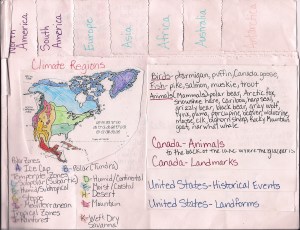 North America
South America
Europe
Asia
Africa
Australia
Climate Regions
Birds- ptarmigan, puffin, Canada goose,
Fish- pike, salmon, muskie, trout
Animals (Mammals) polar bear, Arctic fox,
snowshoe hare, caribou, harp seal,
grizzly bear, black bear, gray wolf,
lynx, puma, porcupine, beaver, wolverine,
moose, elk, bighorn sheep, Rocky Mountain
goat, narwhal whale
Canada- Animals
to the back of the
Canada- Landmarks
United States- Historical Events
United States- Landforms
Polar Zones
A- Ice Cap
B- Polar (Tundra)
Temperate Zones
Subpolar (Subarctic)
D- Humid/Continental
Humid/Subtropical
Moist/Coastal
Steppe
H- Desert
Mediterranean
Mountain
Tropical Zones
Rainforest
K- Wet/Dry
Savanna